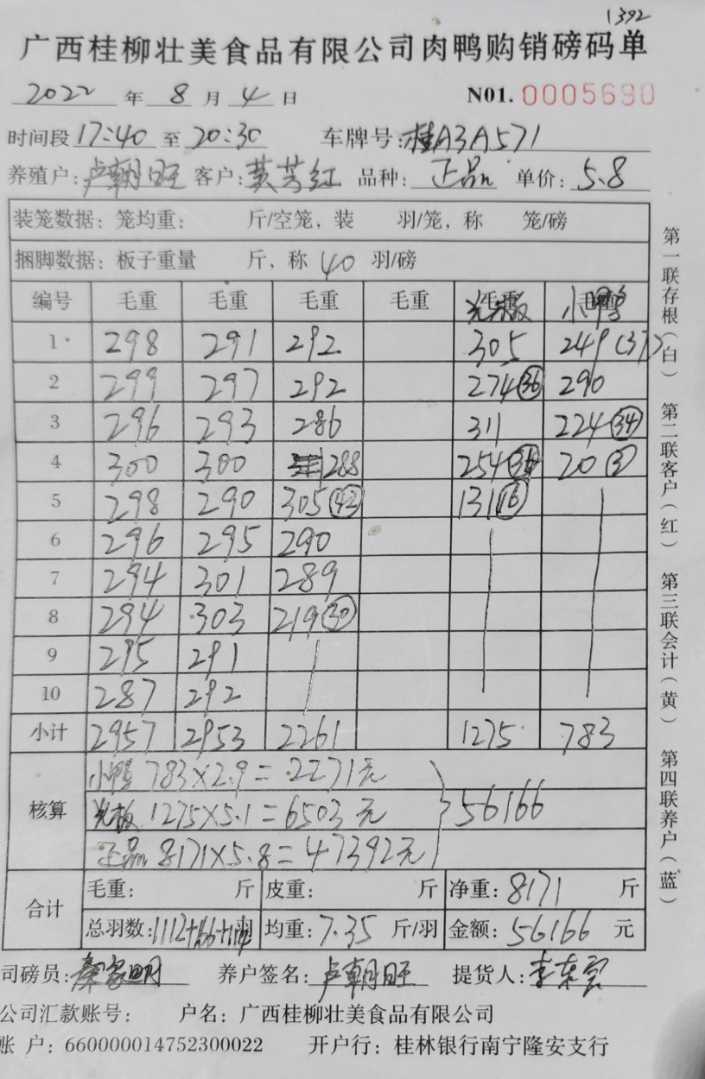 1392
广西桂柳壮美食品有限公司肉鸭购销磅码单
2022 年 8 月 4 日 N01. 0005690
时间段 17:40 至 20:30 车牌号: 桂A3A571
养殖户: 卢朝旺 客户: 黄芳红 品种: 正品 单价: 5.8
装笼数据: 笼均重: 斤/空笼, 装 羽/笼, 称 笼/磅
捆脚数据: 板子重量 斤, 称 40 羽/磅
编号 毛重 毛重 毛重 毛重 光板 小鸭
1 298 291 292 305 249 (37)
2 299 297 292 274 (36) 290
3 296 293 286 311 224 (34)
4 300 300 288 254 20 (3)
5 298 290 305 (42) 131 (16)
6 296 295 290
7 294 301 289
8 294 303 219 (30)
9 295 291
10 287 292
小计 2957 2953 2261 1275 783
核算 小鸭 783×2.9=2271元
光板 1275×5.1=6503元 56166
正品 8171×5.8=47392元
合计 毛重: 斤 皮重: 斤 净重: 8171 斤
总羽数: 1112+166+ 均重: 7.35 斤/羽 金额: 56166 元
司磅员: 秦家明 养户签名: 卢朝旺 提货人:
公司汇款账号: 户名: 广西桂柳壮美食品有限公司
账 户: 660000014752300022 开户行: 桂林银行南宁隆安支行
第一联存根(白) 第二联客户(红) 第三联会计(黄) 第四联养户(蓝)